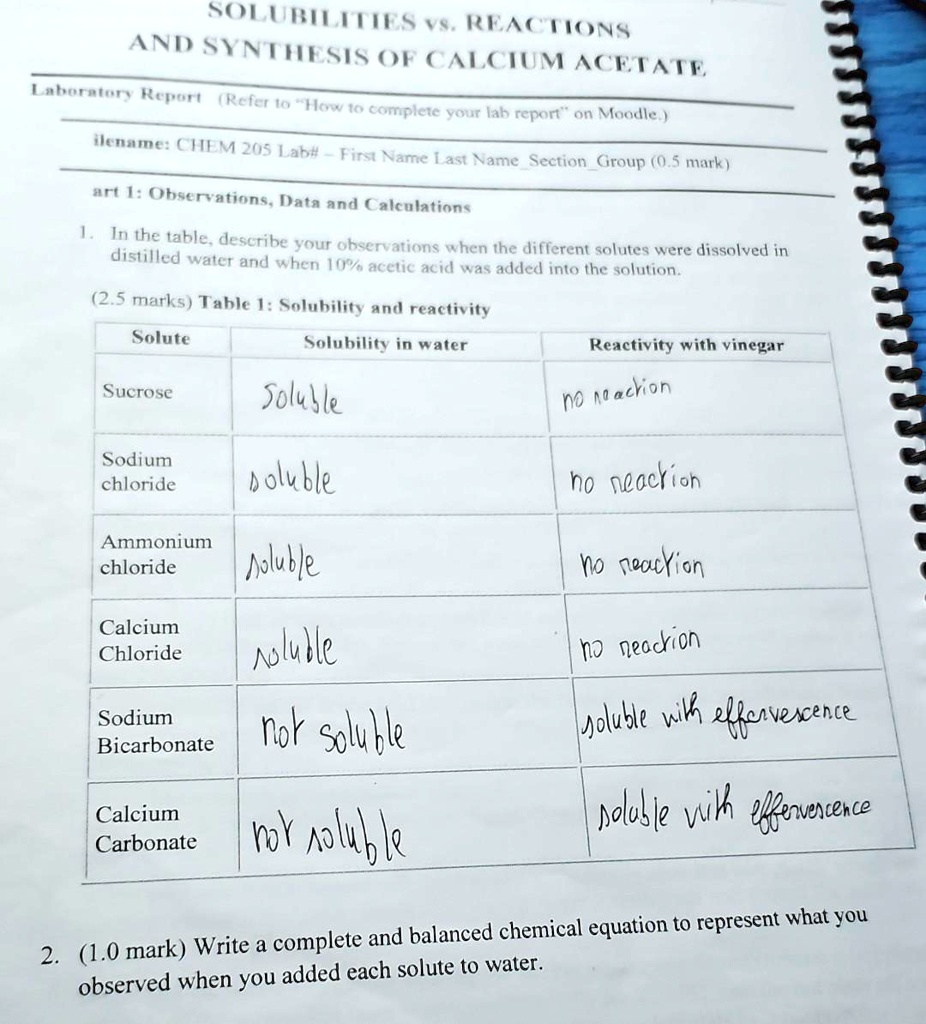 SOLUBILITIES vs. REACTIONS
AND SYNTHESIS OF CALCIUM ACETATE
Laboratory Report (Refer to "How to complete your lab report" on Moodle.)
ilename: CHEM 205 Lab# – First Name Last Name_Section_Group (0.5 mark)
art 1: Observations, Data and Calculations
1. In the table, describe your observations when the different solutes were dissolved in
distilled water and when 10% acetic acid was added into the solution.
(2.5 marks) Table 1: Solubility and reactivity
Solute Solubility in water Reactivity with vinegar
Sucrose soluble no reaction
Sodium
chloride soluble no reaction
Ammonium
chloride soluble no reaction
Calcium
Chloride soluble no reaction
Sodium
Bicarbonate not soluble soluble with effervescence
Calcium
Carbonate not soluble soluble with effervescence
2. (1.0 mark) Write a complete and balanced chemical equation to represent what you
observed when you added each solute to water.